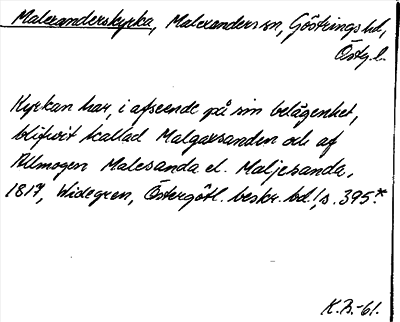 Malexanderskyrka, Malexanders sn, Göstrings hd,
Östg. l.
Kyrkan har, i afseende på sin belägenhet,
blifwit kallad Malgaxsanden och af
Allmogen Malesanda el. Maljesanda,
1817, Widegren, Östergötl. beskr. bd. 1, s. 395.*
K.B.-61.